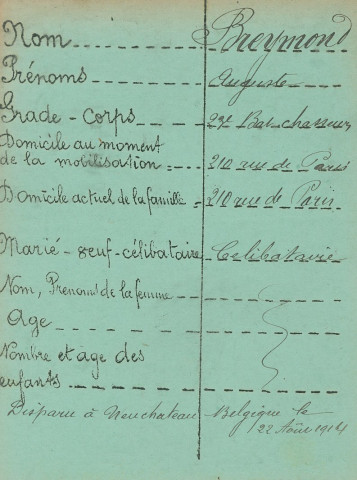 Nom Breymond
Prénoms Auguste
Grade - Corps 22e Bat chasseurs
Domicile au moment
de la mobilisation = 210 rue de Paris
Domicile actuel de la famille = 210 rue de Paris
Marié - veuf - célibataire Celibataire
Nom, Prénoms de la femme
Age
Nombre et age des
enfants
Disparu à Neuchateau Belgique le
22 Août 1914